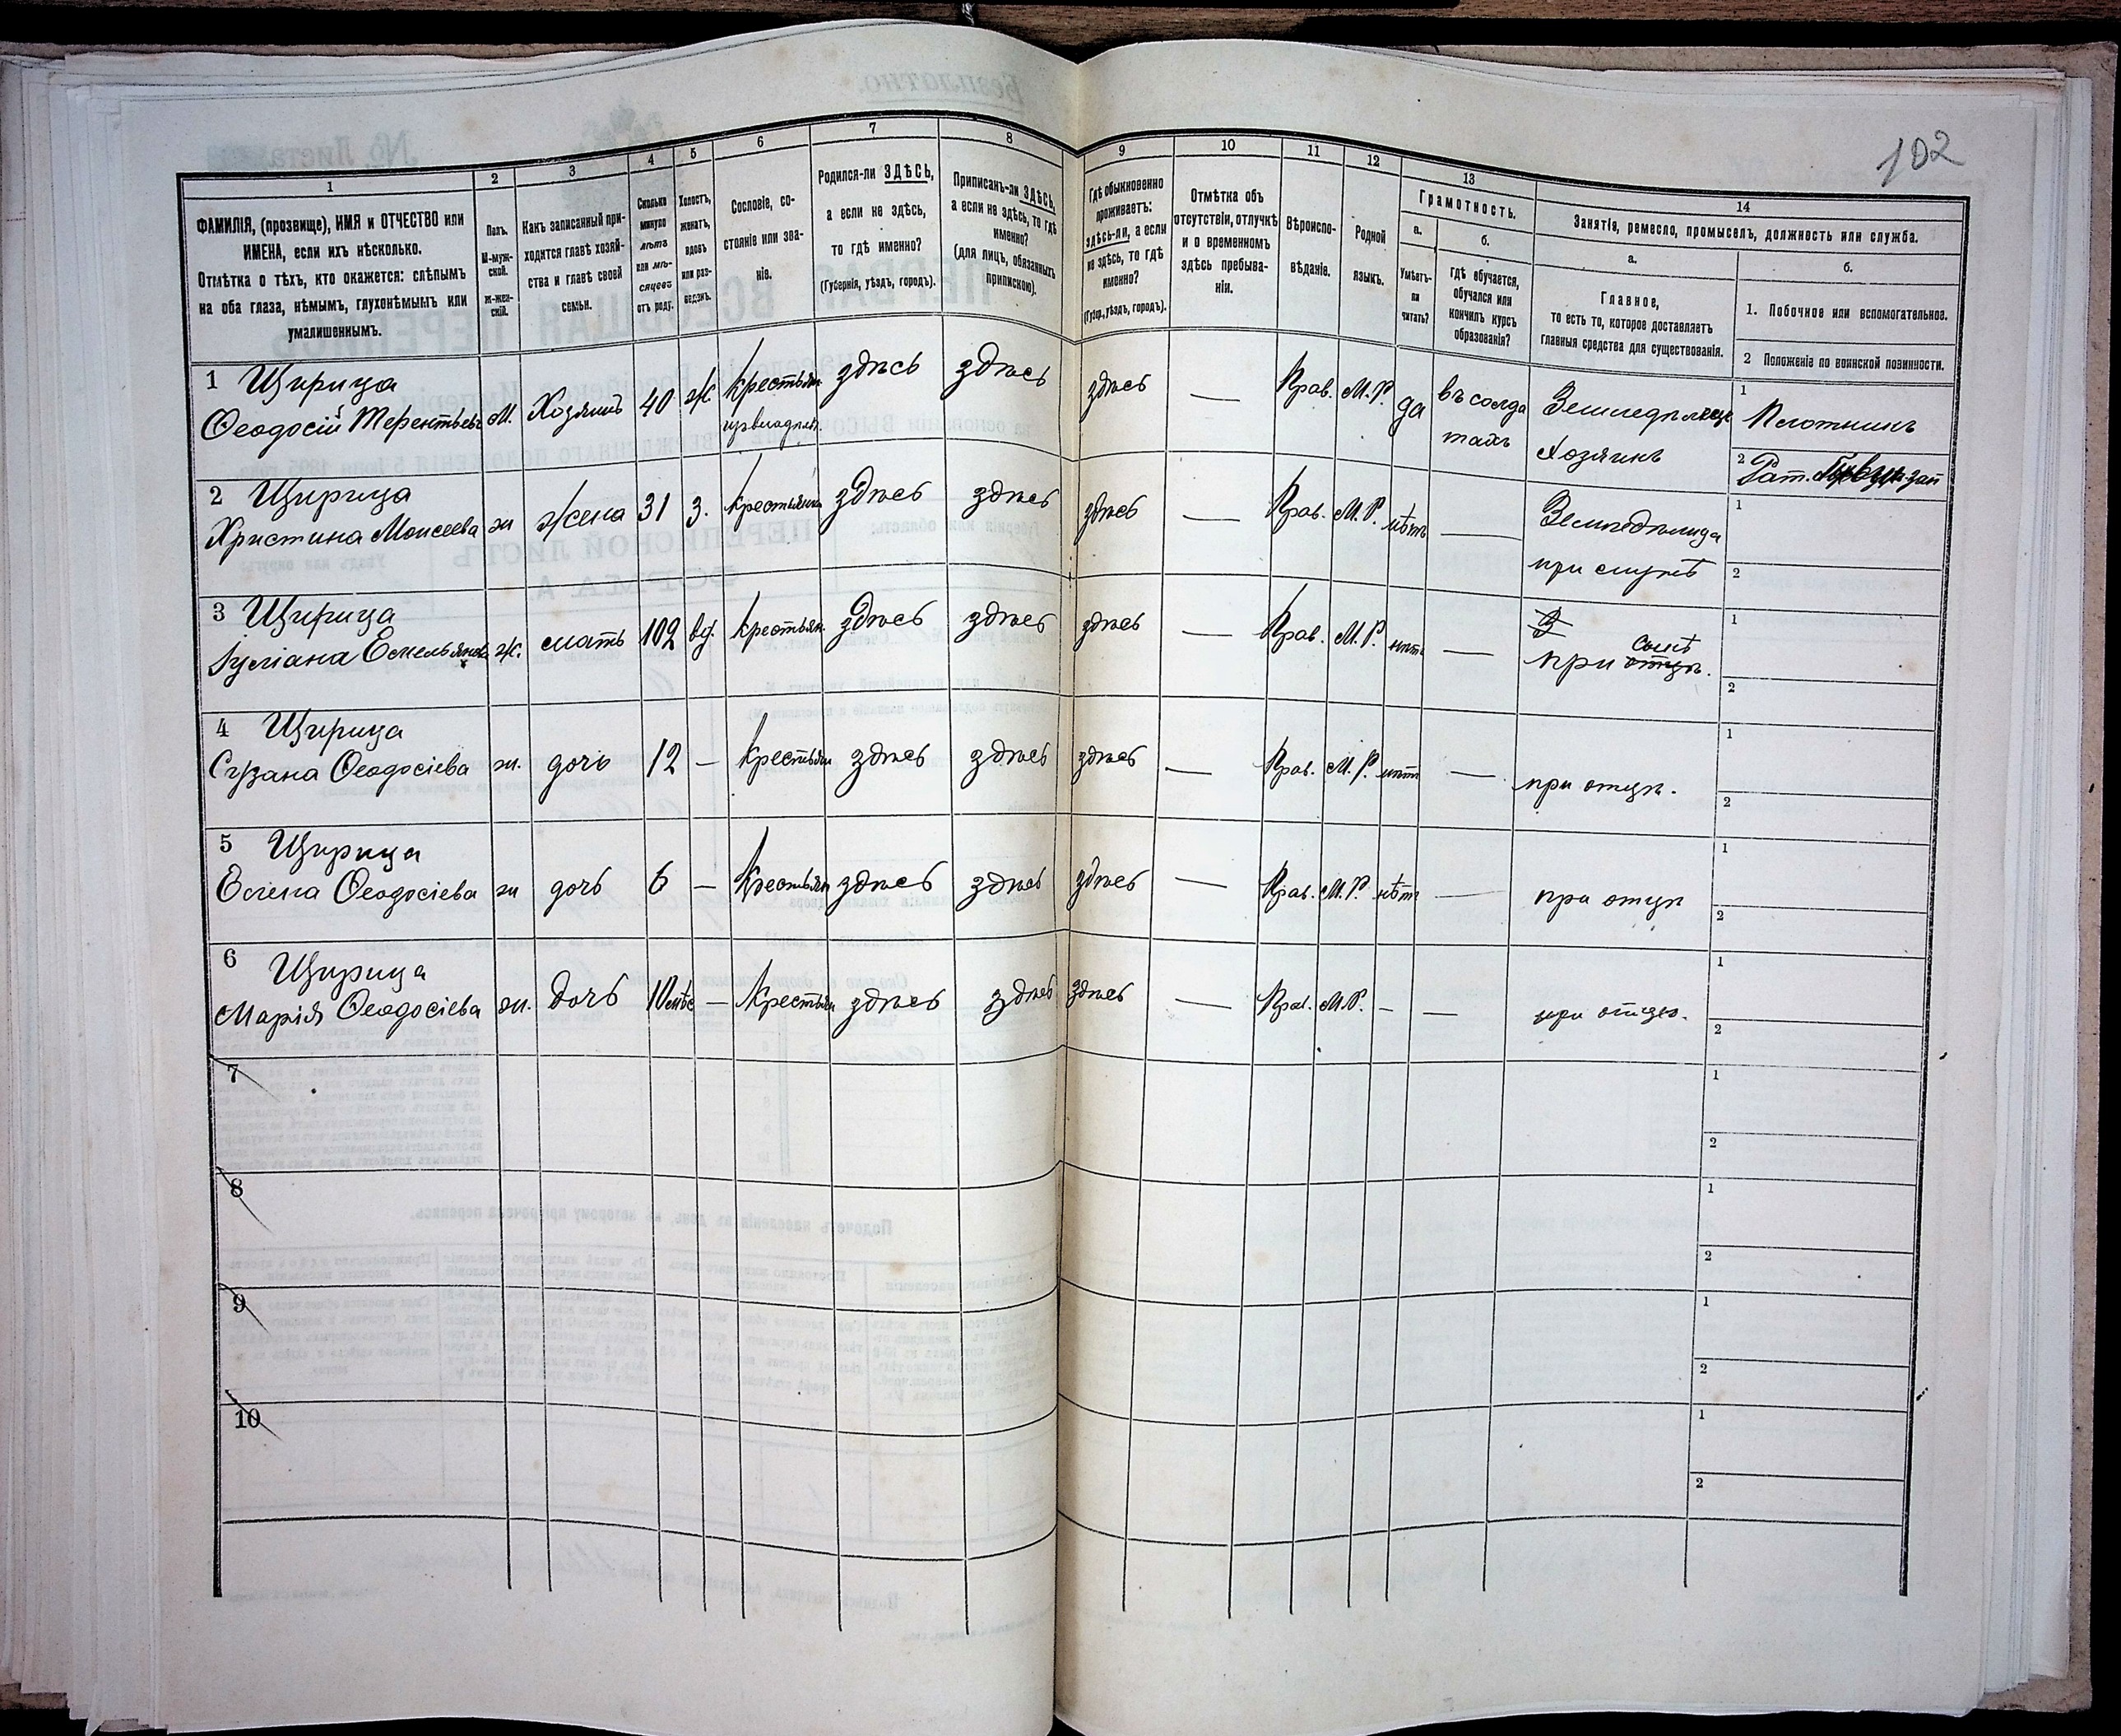 102
1
2
3
4
5
6
7
8
9
10
11
12
13
14
ФАМИЛІЯ, (прозвище), ИМЯ и ОТЧЕСТВО или
ИМЕНА, если ихъ нѣсколько.
Отмѣтка о тѣхъ, кто окажется: слѣпымъ
на оба глаза, нѣмымъ, глухонѣмымъ или
умалишеннымъ.
Полъ.
М-муж-
ской.
Ж-жен-
скій.
Какъ записанный при-
ходится главѣ хозяй-
ства и главѣ своей
семьи.
Сколько
минуло
лѣтъ
или мѣ-
сяцевъ
отъ роду.
Холостъ,
женатъ,
вдовъ
или раз-
веденъ.
Сословіе, со-
стояніе или зва-
ніе.
Родился-ли ЗДѢСЬ,
а если не здѣсь,
то гдѣ именно?
(Губернія, уѣздъ, городъ).
Приписанъ-ли ЗДѢСЬ,
а если не здѣсь, то гдѣ
именно?
(для лицъ, обязанныхъ
припискою).
Гдѣ обыкновенно
проживаетъ:
здѣсь-ли, а если
не здѣсь, то гдѣ
именно?
(Губер., уѣздъ, городъ).
Отмѣтка объ
отсутствіи, отлучкѣ
и о временномъ
здѣсь пребыва-
ніи.
Вѣроиспо-
вѣданіе.
Родной
языкъ.
Грамотность.
а.
Умѣетъ-
ли
читать?
б.
Гдѣ обучается,
обучался или
кончилъ курсъ
образованія?
Занятія, ремесло, промыселъ, должность или служба.
а.
Главное,
то есть то, которое доставляетъ
главныя средства для существованія.
б.
1. Побочное или вспомогательное.
2 Положеніе по воинской повинности.
1 Щирица
Ѳеодосій Терентьевъ М. Хозяинъ 40 Ж. крестьян здѣсь здѣсь здѣсь — Прав. М. Р. да въ солда
тахъ Земледѣлецъ
Хозяинъ
1 Плотникъ
2 Рат. зап
2 Щирица
Христина Моисеева ж жена 31 З. крестьянка здѣсь здѣсь здѣсь — Прав. М. Р. нѣтъ — Земледѣлица
при мужѣ
1
2
3 Щирица
Іуліана Емельянова Ж. мать 102 вд. крестьян. здѣсь здѣсь здѣсь — Прав. М. Р. нѣтъ — З
при отцѣ. сынѣ
1
2
4 Щирица
Сузана Ѳеодосіева ж. дочь 12 — крестьян здѣсь здѣсь здѣсь — Прав. М. Р. нѣтъ — при отцѣ.
1
2
5 Щирица
Елена Ѳеодосіева ж дочь 6 — Крестьян здѣсь здѣсь здѣсь — Прав. М. Р. нѣтъ — при отцѣ
1
2
6 Щирица
Марія Ѳеодосіева ж. дочь 10 мѣс — Крестьян здѣсь здѣсь здѣсь — Прав. М. Р. — — при отцѣ.
1
2
7
1
2
8
1
2
9
1
2
10
1
2